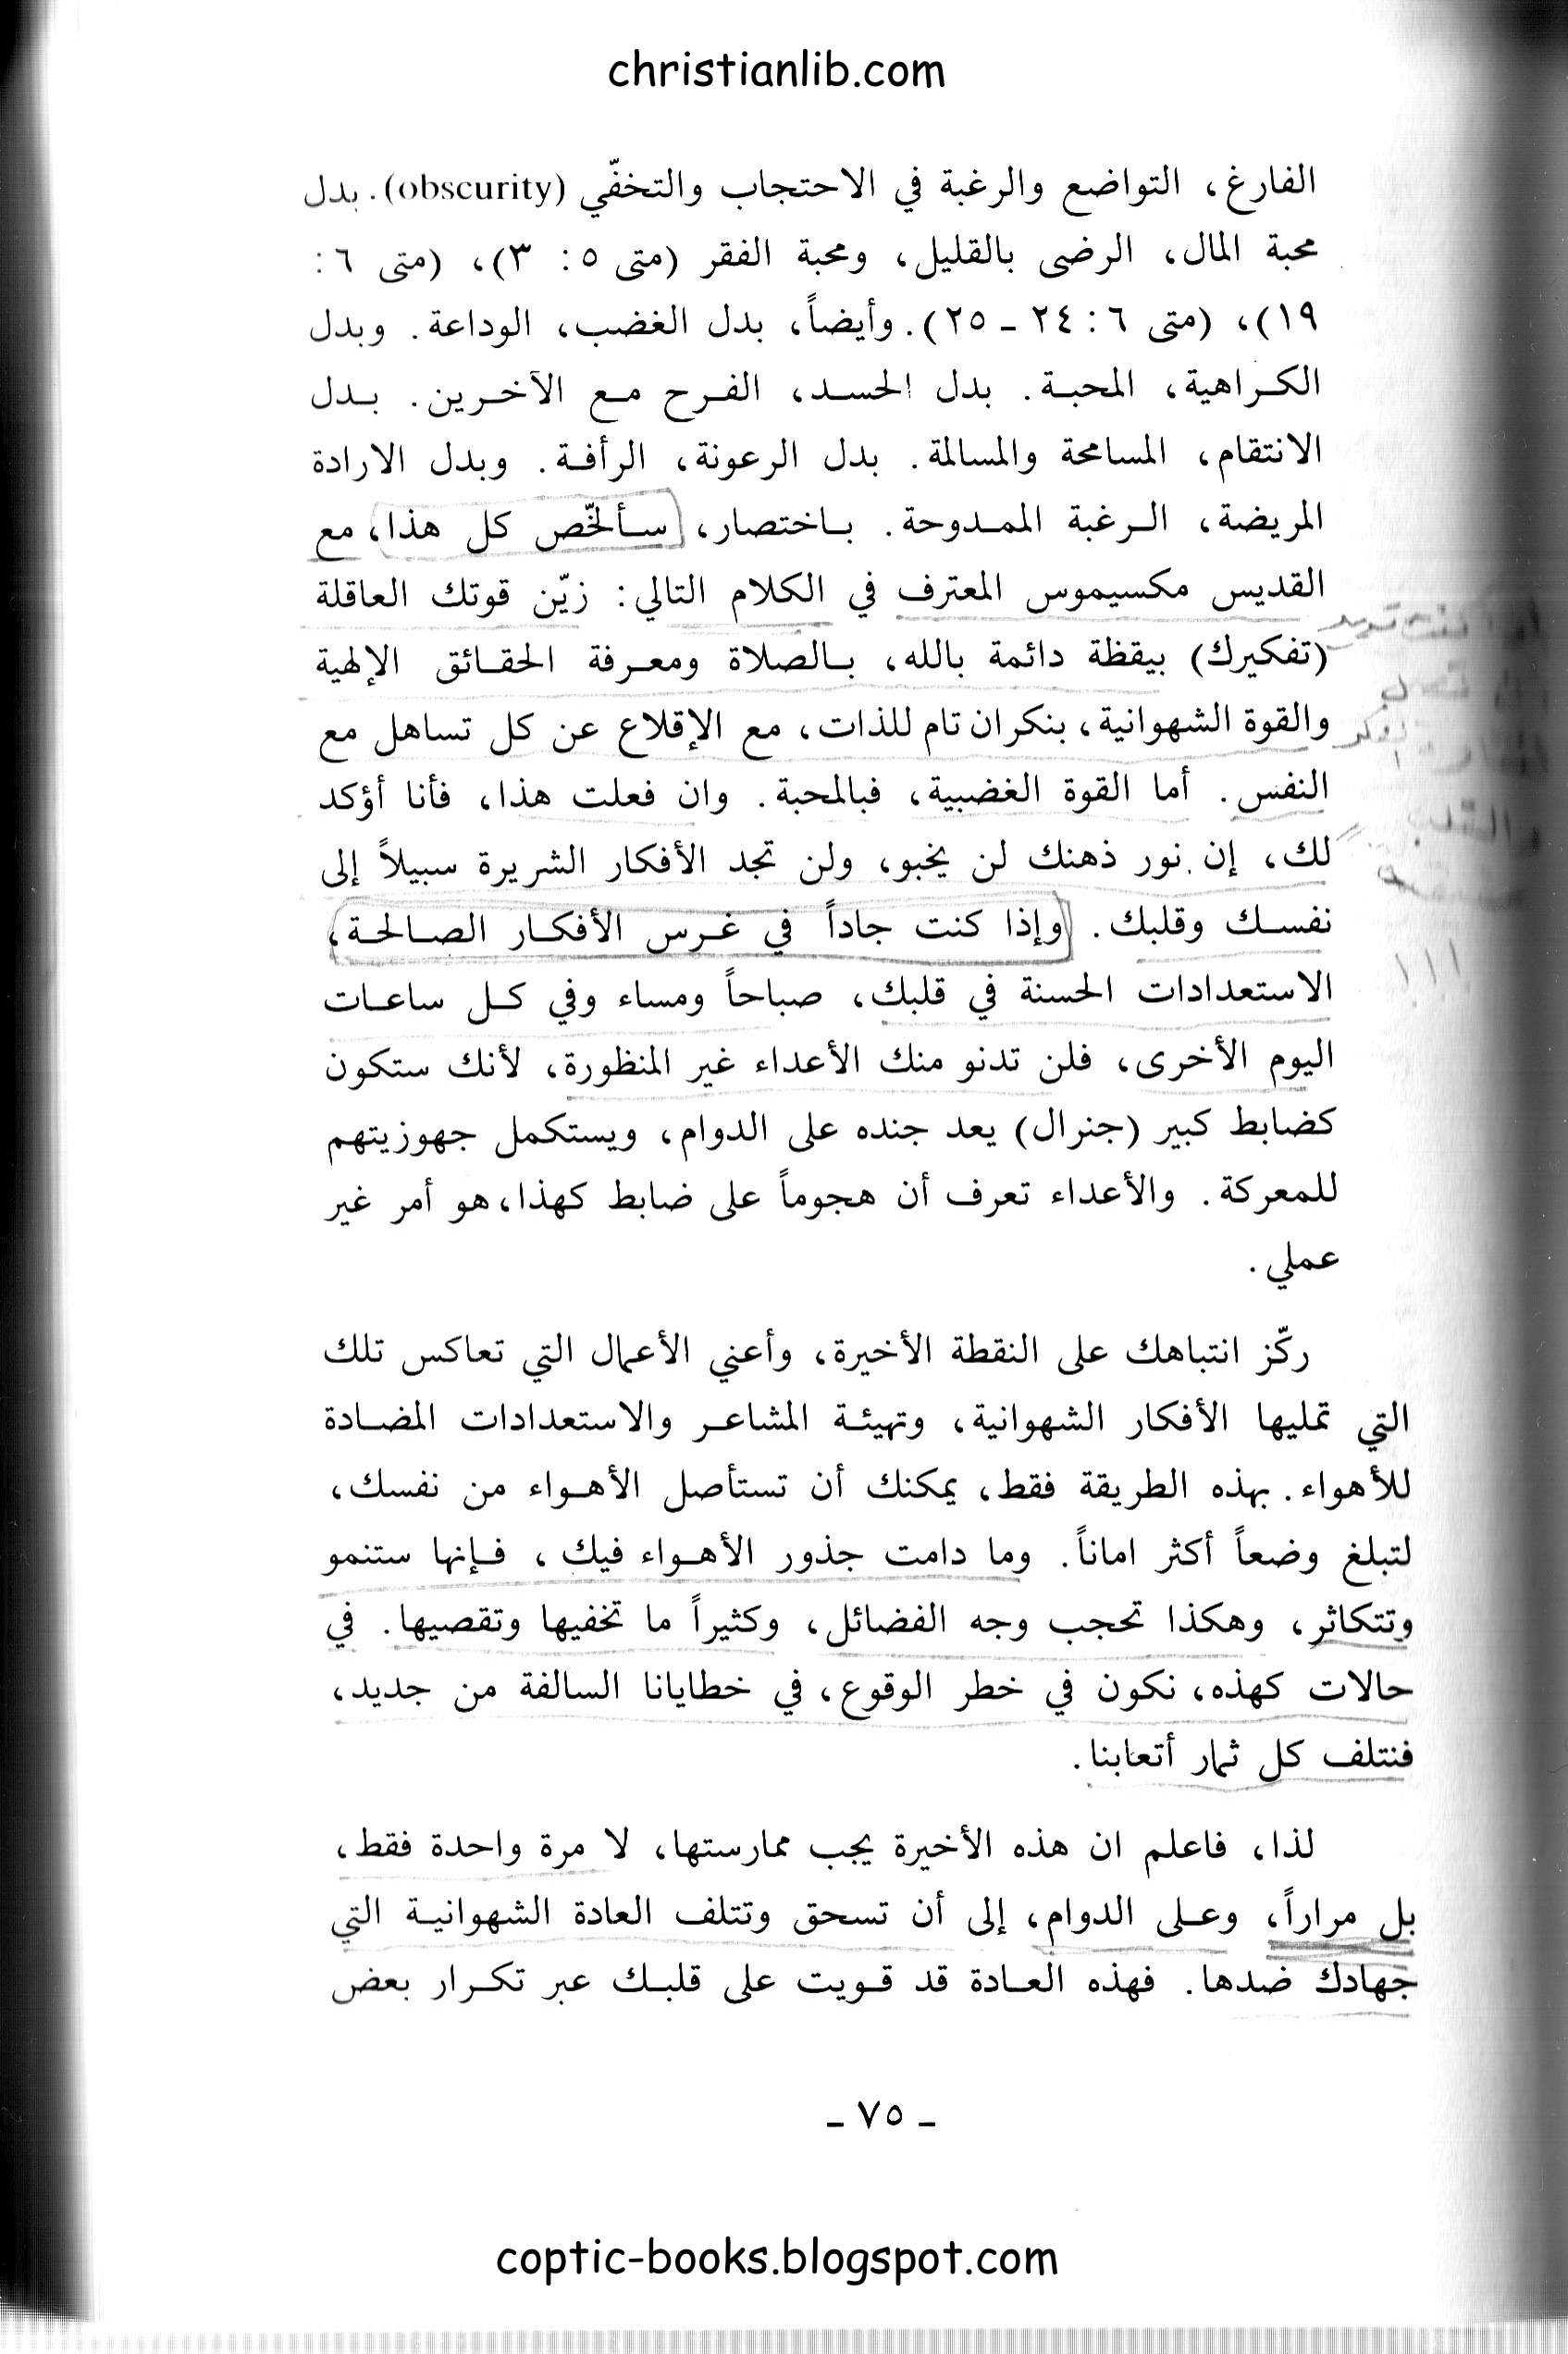 christianlib.com
الفارغ، التواضع والرغبة في الاحتجاب والتخفّي (obscurity). بدل
محبة المال، الرضى بالقليل، ومحبة الفقر (متى ٥: ٣)، (متى ٦:
١٩)، (متى ٦: ٢٤ - ٢٥). وأيضاً، بدل الغضب، الوداعة. وبدل
الكراهية، المحبة. بدل الحسد، الفرح مع الآخرين. بدل
الانتقام، المسامحة والمسالمة. بدل الرعونة، الرأفة. وبدل الارادة
المريضة، الرغبة الممدوحة. باختصار، سألخّص كل هذا، مع
القديس مكسيموس المعترف في الكلام التالي: زيّن قوتك العاقلة
(تفكيرك) بيقظة دائمة بالله، بالصلاة ومعرفة الحقائق الإلهية
والقوة الشهوانية، بنكران تام للذات، مع الإقلاع عن كل تساهل مع
النفس. أما القوة الغضبية، فبالمحبة. وان فعلت هذا، فأنا أؤكد
لك، إن نور ذهنك لن يخبو، ولن تجد الأفكار الشريرة سبيلاً إلى
نفسك وقلبك. وإذا كنت جاداً في غرس الأفكار الصالحة،
الاستعدادات الحسنة في قلبك، صباحاً ومساء وفي كل ساعات
اليوم الأخرى، فلن تدنو منك الأعداء غير المنظورة، لأنك ستكون
كضابط كبير (جنرال) يعد جنده على الدوام، ويستكمل جهوزيتهم
للمعركة. والأعداء تعرف أن هجوماً على ضابط كهذا، هو أمر غير
عملي.
ركّز انتباهك على النقطة الأخيرة، وأعني الأعمال التي تعاكس تلك
التي تمليها الأفكار الشهوانية، وتهيئة المشاعر والاستعدادات المضادة
للأهواء. بهذه الطريقة فقط، يمكنك أن تستأصل الأهواء من نفسك،
لتبلغ وضعاً أكثر اماناً. وما دامت جذور الأهواء فيك، فإنها ستنمو
وتتكاثر، وهكذا تحجب وجه الفضائل، وكثيراً ما تخفيها وتقصيها. في
حالات كهذه، نكون في خطر الوقوع، في خطايانا السالفة من جديد،
فنتلف كل ثمار أتعابنا.
لذا، فاعلم ان هذه الأخيرة يجب ممارستها، لا مرة واحدة فقط،
بل مراراً، وعلى الدوام، إلى أن تسحق وتتلف العادة الشهوانية التي
جهادك ضدها. فهذه العادة قد قويت على قلبك عبر تكرار بعض
- ٧٥ -
coptic-books.blogspot.com